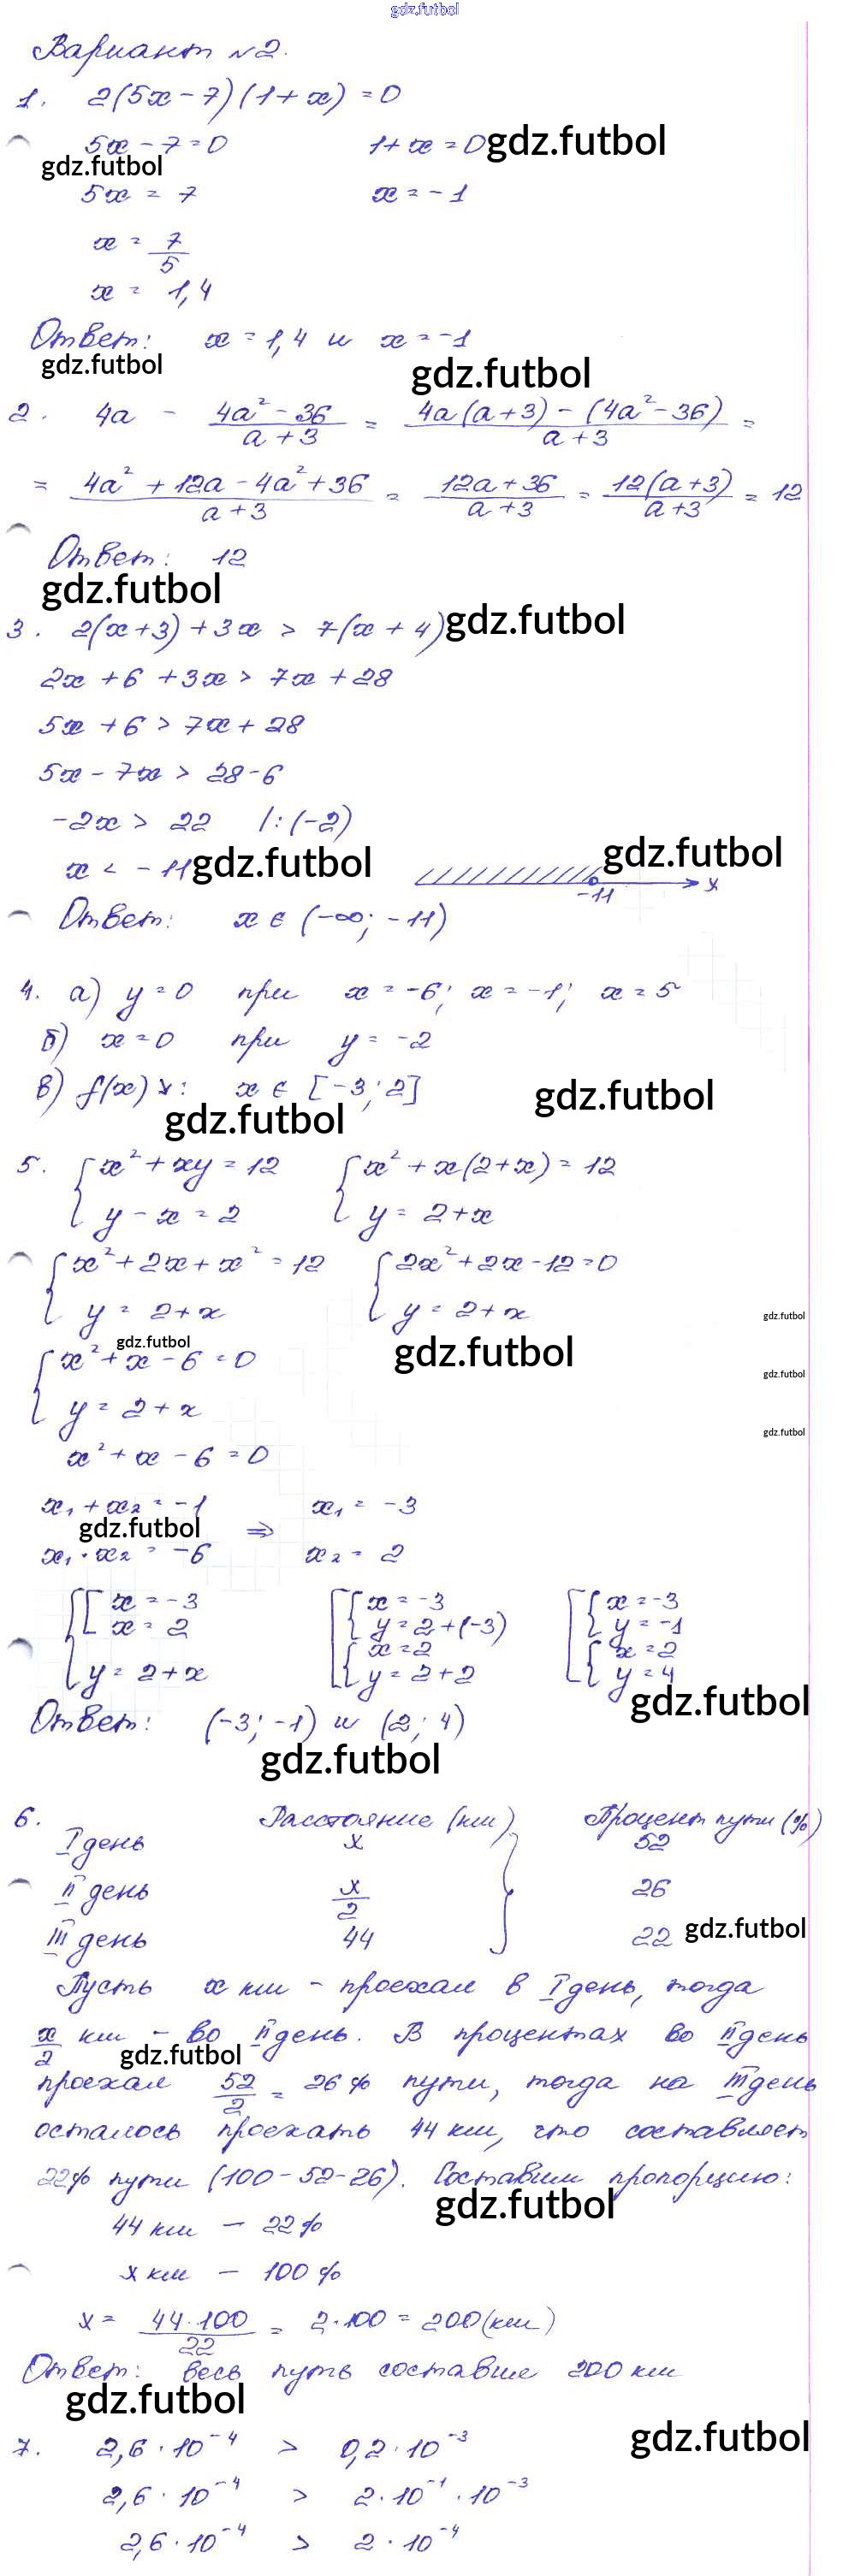 gdz.futbol
Вариант №2.
1. 2(5x-7)(1+x)=0
5x-7=0 1+x=0 gdz.futbol
gdz.futbol
5x = 7 x=-1
x = 7/5
x = 1,4
Ответ: x=1,4 и x=-1
gdz.futbol gdz.futbol
2. 4a - (4a²-36)/(a+3) = (4a(a+3)-(4a²-36))/(a+3) =
= (4a²+12a-4a²+36)/(a+3) = (12a+36)/(a+3) = 12(a+3)/(a+3) = 12
Ответ: 12
gdz.futbol
3. 2(x+3)+3x > 7(x+4) gdz.futbol
2x+6+3x > 7x+28
5x+6 > 7x+28
5x-7x > 28-6
-2x > 22 |:(-2)
x < -11 gdz.futbol gdz.futbol
-11 x
Ответ: x ∈ (-∞; -11)
4. а) y=0 при x=-6; x=-1; x=5
б) x=0 при y=-2
в) f(x)↘: x ∈ [-3; 2] gdz.futbol
gdz.futbol
5. { x²+xy=12 { x²+x(2+x)=12
y-x=2 y=2+x
{ x²+2x+x²=12 { 2x²+2x-12=0
y=2+x y=2+x
gdz.futbol
gdz.futbol gdz.futbol
{ x²+x-6=0
gdz.futbol
y=2+x
gdz.futbol
x²+x-6=0
x₁+x₂=-1 x₁=-3
gdz.futbol ⇒
x₁·x₂=-6 x₂=2
{ [ x=-3 [ { x=-3 [ { x=-3
x=2 y=2+(-3) y=-1
{ x=2 { x=2
y=2+x y=2+2 y=4
gdz.futbol
Ответ: (-3; -1) и (2; 4)
gdz.futbol
6. Расстояние (км) Процент пути (%)
I день x 52
II день x/2 26
III день 44 22 gdz.futbol
Пусть x км - проехал в I день, тогда
x/2 км - во II день. В процентах во II день
gdz.futbol
проехал 52/2 = 26% пути, тогда на III день
осталось проехать 44 км, что составляет
22% пути (100-52-26). Составим пропорцию:
gdz.futbol
44 км - 22%
x км - 100%
x = 44·100/22 = 2·100 = 200 (км)
Ответ: весь путь составил 200 км
gdz.futbol
gdz.futbol
7. 2,6·10⁻⁴ > 0,2·10⁻³
2,6·10⁻⁴ > 2·10⁻¹·10⁻³
2,6·10⁻⁴ > 2·10⁻⁴